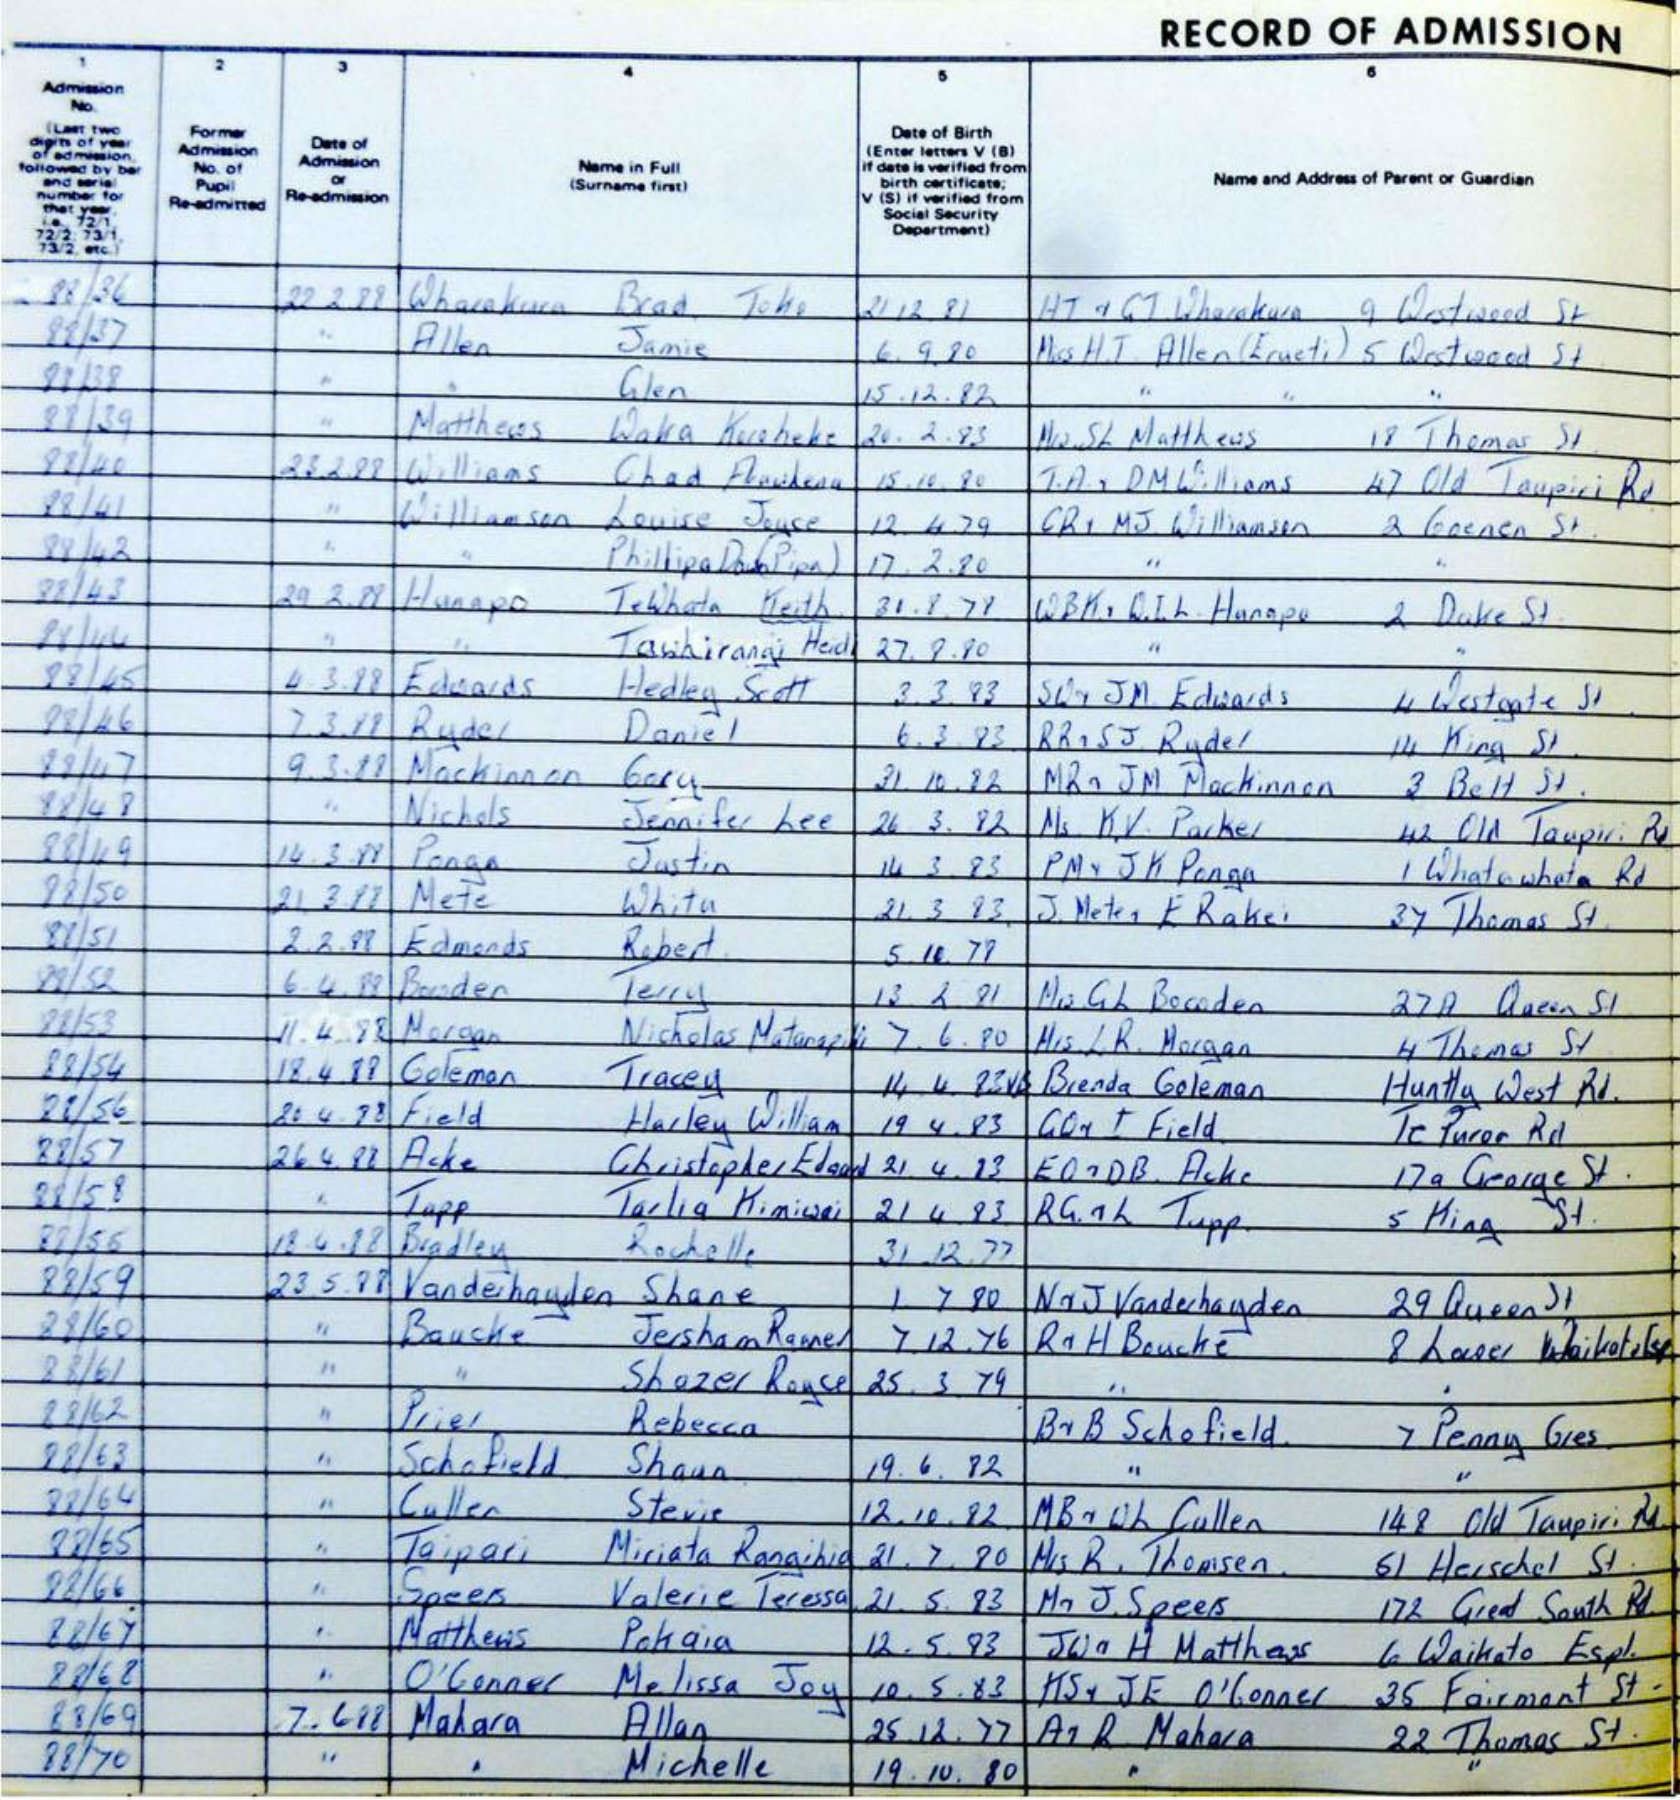 RECORD OF ADMISSION
1 2 3 4 5 6
Admission No. (Last two digits of year of admission, followed by bar and serial number for that year, i.e. 72/1, 72/2; 73/1, 73/2, etc.)
Former Admission No. of Pupil Re-admitted
Date of Admission or Re-admission
Name in Full (Surname first)
Date of Birth (Enter letters V (B) if date is verified from birth certificate; V (S) if verified from Social Security Department)
Name and Address of Parent or Guardian
88/36 22.2.88 Wharakura Brad 21.12.81 HT & GT Wharakura 9 Westwood St
88/37 " Allen Jamie 6.9.80 Miss H.T. Allen (Erueti) 5 Westwood St
88/38 " " Glen 15.12.82 " " "
88/39 " Matthews Waka 20.2.83 Matthews 18 Thomas St.
88/40 23.2.88 Williams Chad 15.10.80 T.A. & DM Williams 47 Old Taupiri Rd
88/41 " Williamson Louise Joyce 12.4.79 CR & MJ. Williamson 2 St.
88/42 " " Phillipa 17.2.80 " "
88/43 29.2.88 Hunapo TeWhata Keith 31.8.78 Hunapo 2 Duke St.
88/44 " " Tawhirangi Heidi 27.8.80 " "
88/45 4.3.88 Edwards Hedley Scott 3.3.83 SW & JM. Edwards 4 Westgate St
88/46 7.3.88 Ryder Daniel 6.3.83 RR & SJ. Ryder 14 King St.
88/47 9.3.88 Mackinnon Gary 31.10.82 MR & JM Mackinnon 3 Belt St.
88/48 " Nichols Jennifer Lee 26.3.82 Ms. K.V. Parker 42 Old Taupiri Rd
88/49 14.3.88 Ponga Justin 14.3.83 PM & JK Ponga 1 Whatawhata Rd
88/50 21.3.88 Mete Whitu 21.3.83 J. Mete & E Rakei 37 Thomas St.
88/51 2.2.88 Edmonds Robert 5.10.78
88/52 6.4.88 Bowden Terry 13.2.81 GL Bowden 27A Queen St
88/53 11.4.88 Morgan Nicholas 7.6.80 Mrs L.R. Morgan 4 Thomas St
88/54 18.4.88 Coleman Tracey 14.4.83 VB Brenda Coleman Huntly West Rd.
88/56 20.4.88 Field Harley William 19.4.83 Field Te Puroa Rd
88/57 26.4.88 Acke Christopher Edward 21.4.83 EO & DB. Acke 17a George St.
88/58 " Tupp Tarlia Kimiwai 21.4.83 RG. & L Tupp. 5 King St.
88/55 18.4.88 Bradley Rochelle 31.12.77
88/59 23.5.88 Vanderhayden Shane 1.7.80 N & J Vanderhayden 29 Queen St
88/60 " Baucke Jersham 7.12.76 R & H Baucke 8 Lower Waikato Esp
88/61 " " Shazer Royce 25.3.79 " "
88/62 " Prier Rebecca B & B Schofield. 7 Penny Cres
88/63 " Schofield Shaun 19.6.82 " "
88/64 " Cullen Stevie 12.10.82 MB & WL Cullen 148 Old Taupiri Rd.
88/65 " Taipari Miriata Rangihia 21.7.80 Mrs R. Thomsen. 61 Herschel St.
88/66 " Speers Valerie Teressa 21.5.83 M & J. Speers 172 Great South Rd.
88/67 " Matthews Pokaia 12.5.83 JW & H Matthews 6 Waikato Espl.
88/68 " O'Conner Melissa Joy 10.5.83 KS & JE O'Conner 35 Fairmont St.
88/69 7.6.88 Mahara Allan 25.12.77 A & R Mahara 22 Thomas St.
88/70 " " Michelle 19.10.80 " "